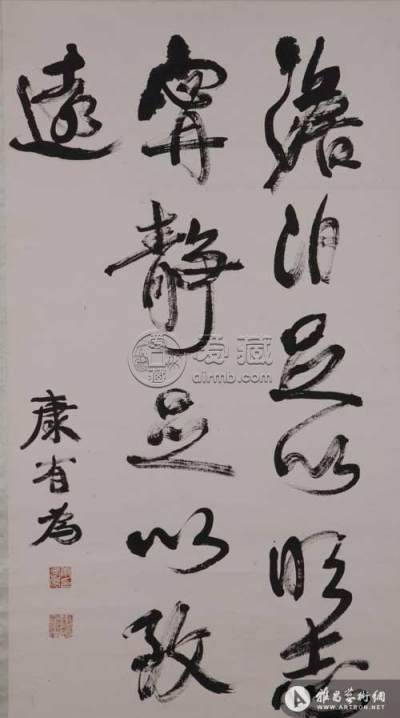 澹泊足以明志
寧靜足以致
遠
康有為
爱藏
airmb.com
雅昌艺術網
WWW.ARTRON.NET